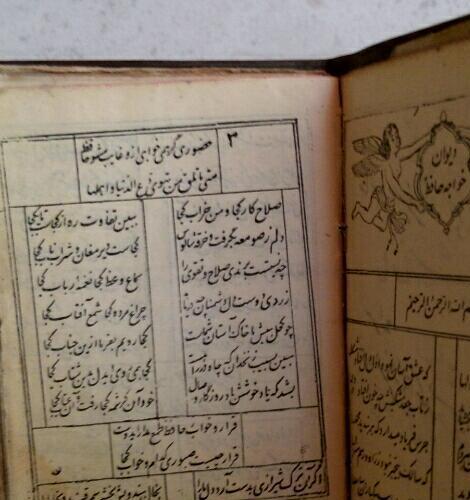 دیوان
خواجه حافظ
م الله الرحمن الرحیم
که عشق آسان نمود اول ولی افتاد مشکلها
ز تاب جعد مشکینش چه خون افتاد
جرس فریاد میدارد که بربندید
که سالک بیخبر نبود ز راه و رسم
۳
حضوری گر همی خواهی ازو غایب مشو حافظ
متی ما تلق من تهوی دع الدنیا و اهملها
صلاح کار کجا و من خراب کجا ببین تفاوت ره از کجاست تا بکجا
دلم ز صومعه بگرفت و خرقه سالوس کجاست دیر مغان و شراب ناب کجا
چه نسبتست برندی صلاح و تقوی را سماع وعظ کجا نغمه رباب کجا
ز روی دوست دل دشمنان چه دریابد چراغ مرده کجا شمع آفتاب کجا
چو کحل بینش ما خاک آستان شماست کجا رویم بفرما ازین جناب کجا
مبین بسیب زنخدان که چاه در راهست کجا همی روی ای دل بدین شتاب کجا
بشد که یاد خوشش باد روزگار وصال خود آن کرشمه کجا رفت و آن عتاب کجا
قرار و خواب ز حافظ طمع مدار ای دوست
قرار چیست صبوری کدام و خواب کجا
اگر آن ترک شیرازی بدست آرد دل ما را